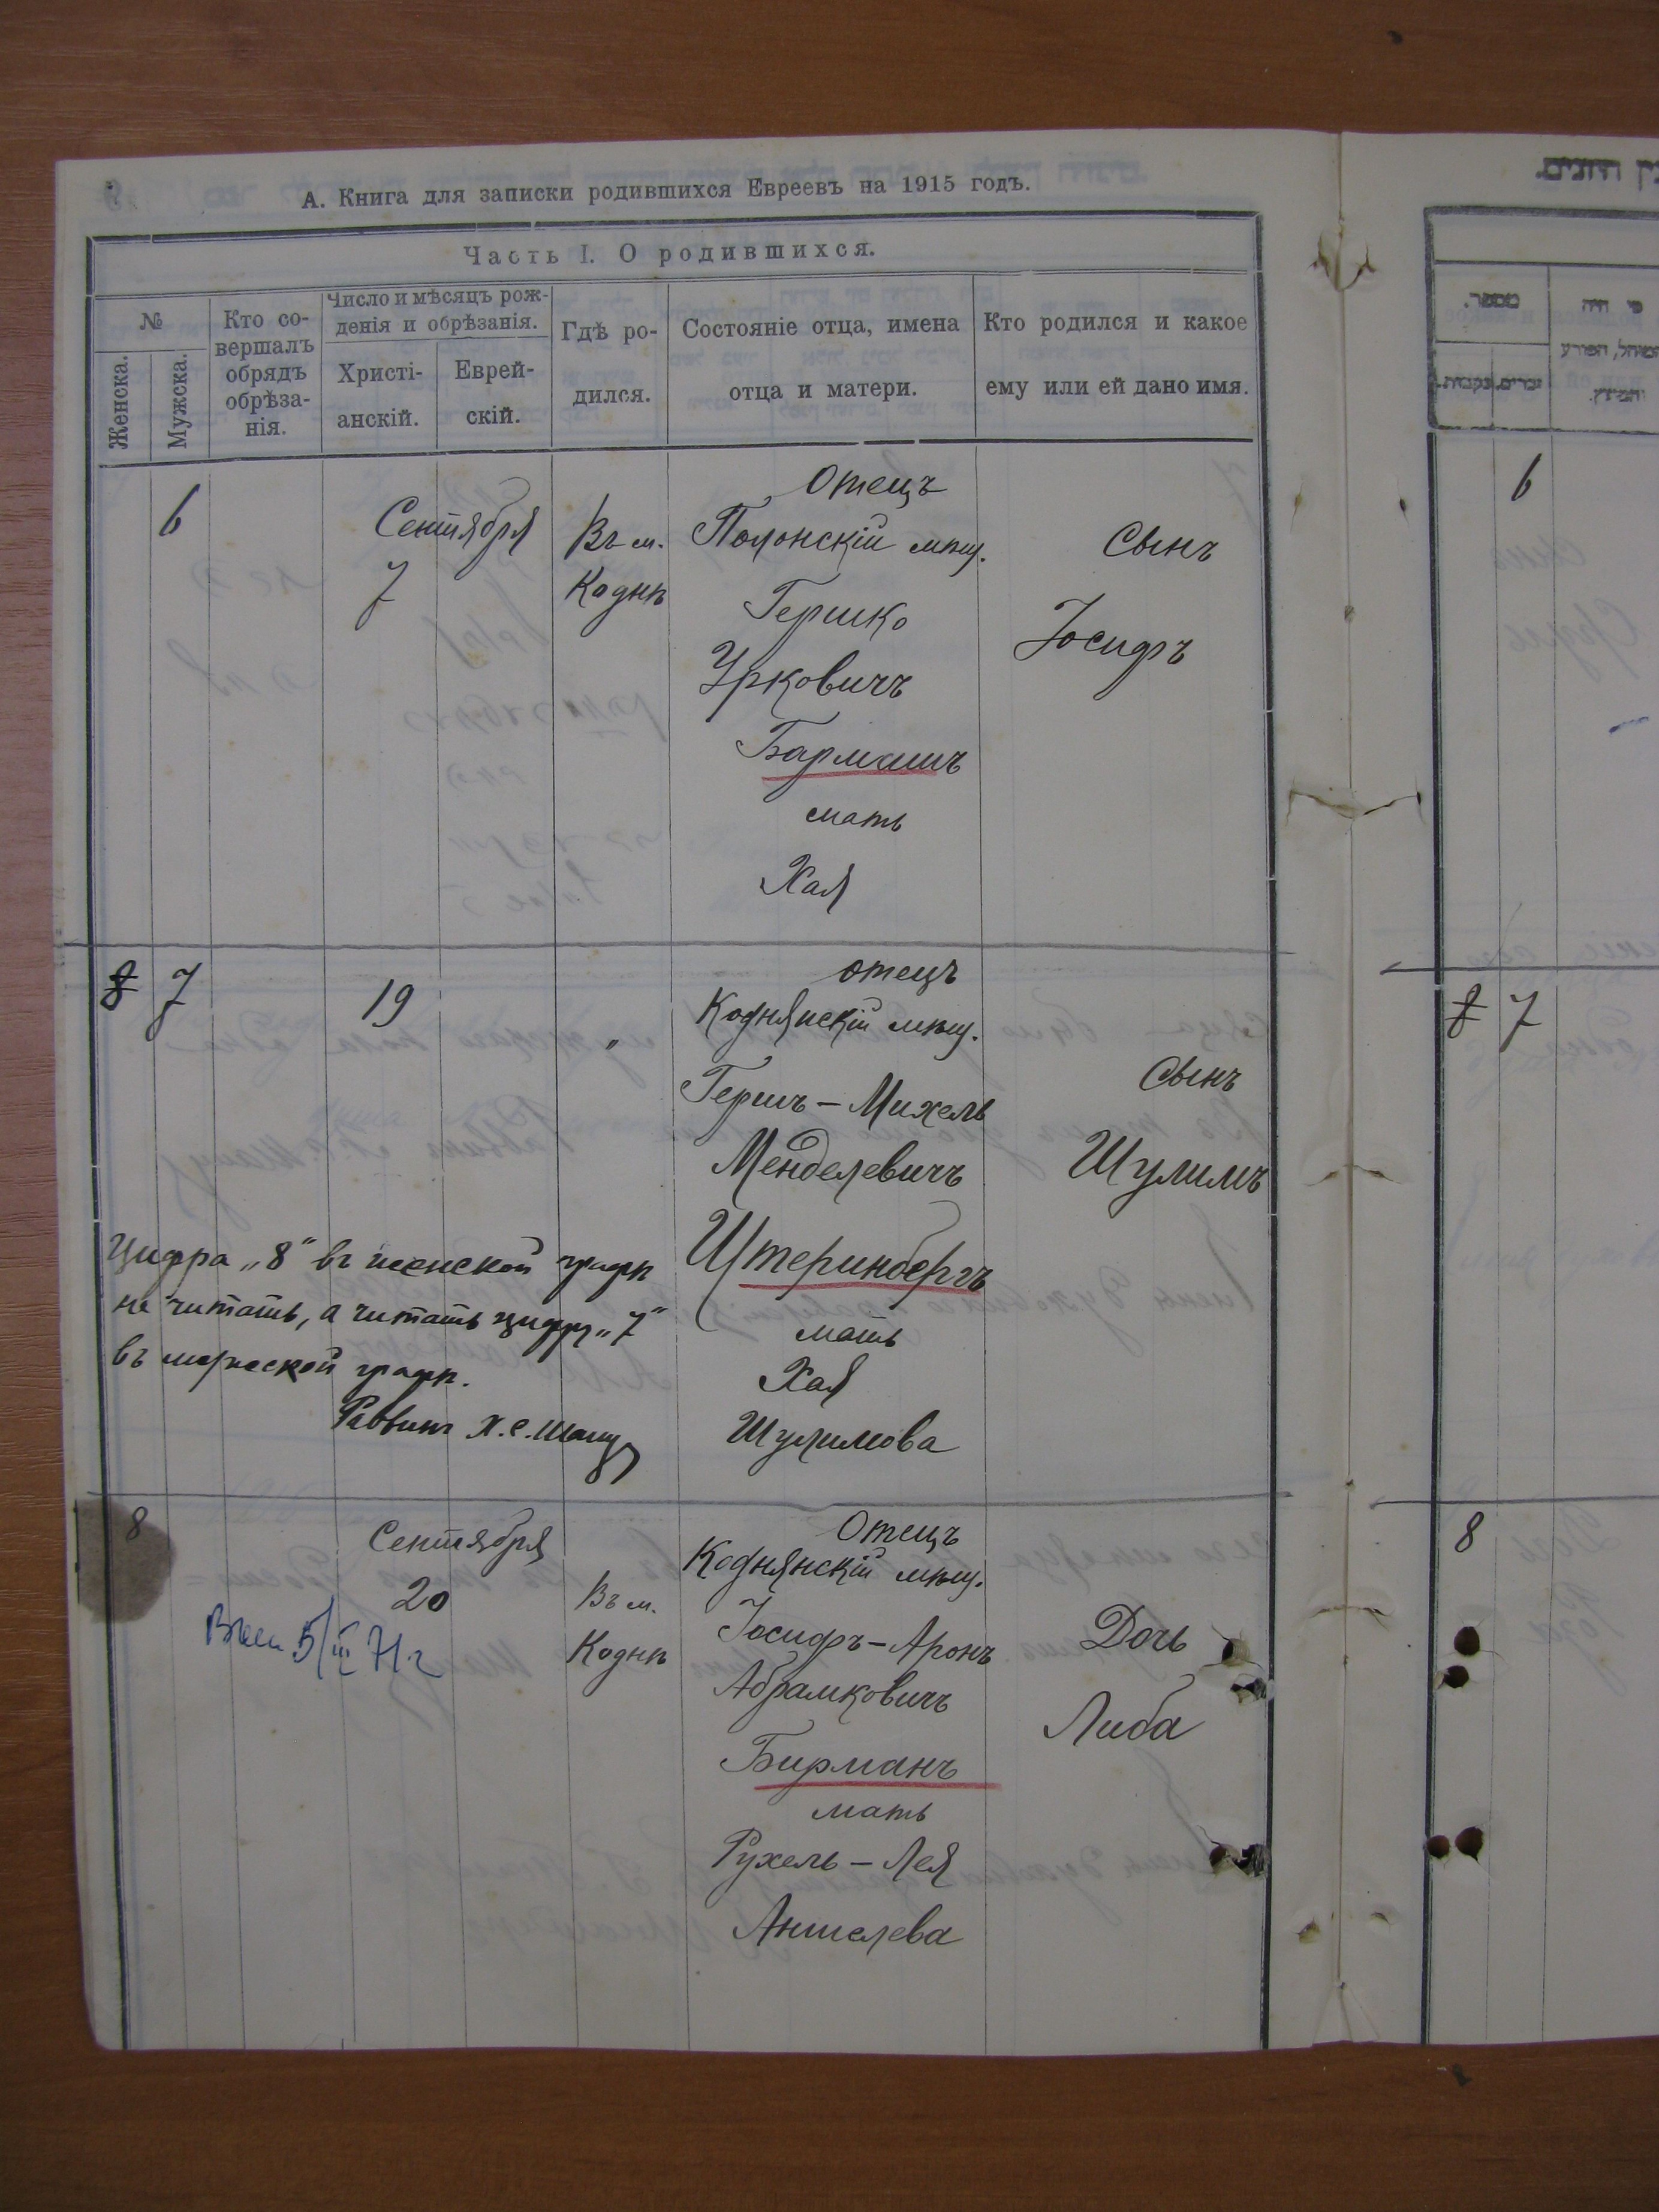 А. Книга для записки родившихся Евреевъ на 1915 годъ.
Часть I. О родившихся.
№
Женска.
Мужска.
Кто со-
вершалъ
обрядъ
обрѣза-
нія.
Число и мѣсяцъ рож-
денія и обрѣзанія.
Христі-
анскій.
Еврей-
скій.
Гдѣ ро-
дился.
Состояніе отца, имена
отца и матери.
Кто родился и какое
ему или ей дано имя.
6
Сентября
7
Въ м.
Коднѣ
Отецъ
Полонскій мѣщ.
Гершко
Урковичъ
Бармашъ
мать
Хая
Сынъ
Іосифъ
8 7
19
"
отецъ
Коднянскій мѣщ.
Гершъ-Михель
Менделевичъ
Штеринбергъ
мать
Хая
Шулимова
Сынъ
Шулимъ
Цифра „8" въ женской графѣ
не читать, а читать цифру „7"
въ мужеской графѣ.
Раввинъ Х. С.
8
Сентября
20
5/III 71 г
Въ м.
Коднѣ
Отецъ
Коднянскій мѣщ.
Іосифъ-Аронъ
Абрамковичъ
Бирманъ
мать
Рухель-Лея
Аншелева
Дочь
Либа
מספר.
6
8 7
8